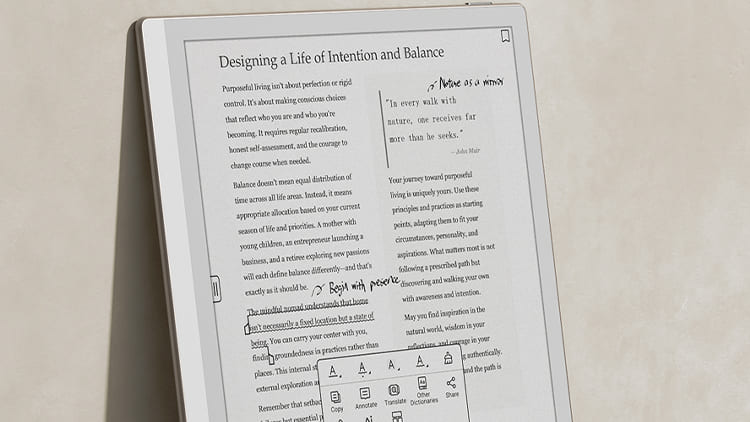 Designing a Life of Intention and Balance
Purposeful living isn't about perfection or rigid
control. It's about making conscious choices
that reflect who you are and who you're
becoming. It requires regular recalibration,
honest self-assessment, and the courage to
change course when needed.
Balance doesn't mean equal distribution of
time across all life areas. Instead, it means
appropriate allocation based on your current
season of life and priorities. A mother with
young children, an entrepreneur launching a
business, and a retiree exploring new passions
will each define balance differently—and that's
exactly as it should be.
Begin with presence
The mindful nomad understands that home
isn't necessarily a fixed location but a state of
being. You can carry your center with you,
finding groundedness in practices rather than
places. This internal
external exploration
Remember that
but essential
Nature as a mirror
"In every walk with
nature, one receives far
more than he seeks."
—John Muir
Your journey toward purposeful
living is uniquely yours. Use these
principles and practices as starting
points, adapting them to fit your
circumstances, personality, and
aspirations. What matters most is not
following a prescribed path but
discovering and walking your own
with awareness and intention.
May you find inspiration in the
natural world, wisdom in your
reflections, and courage in your
authentically.
and the path is
A A A A
Copy Annotate Translate Other Dictionaries Share